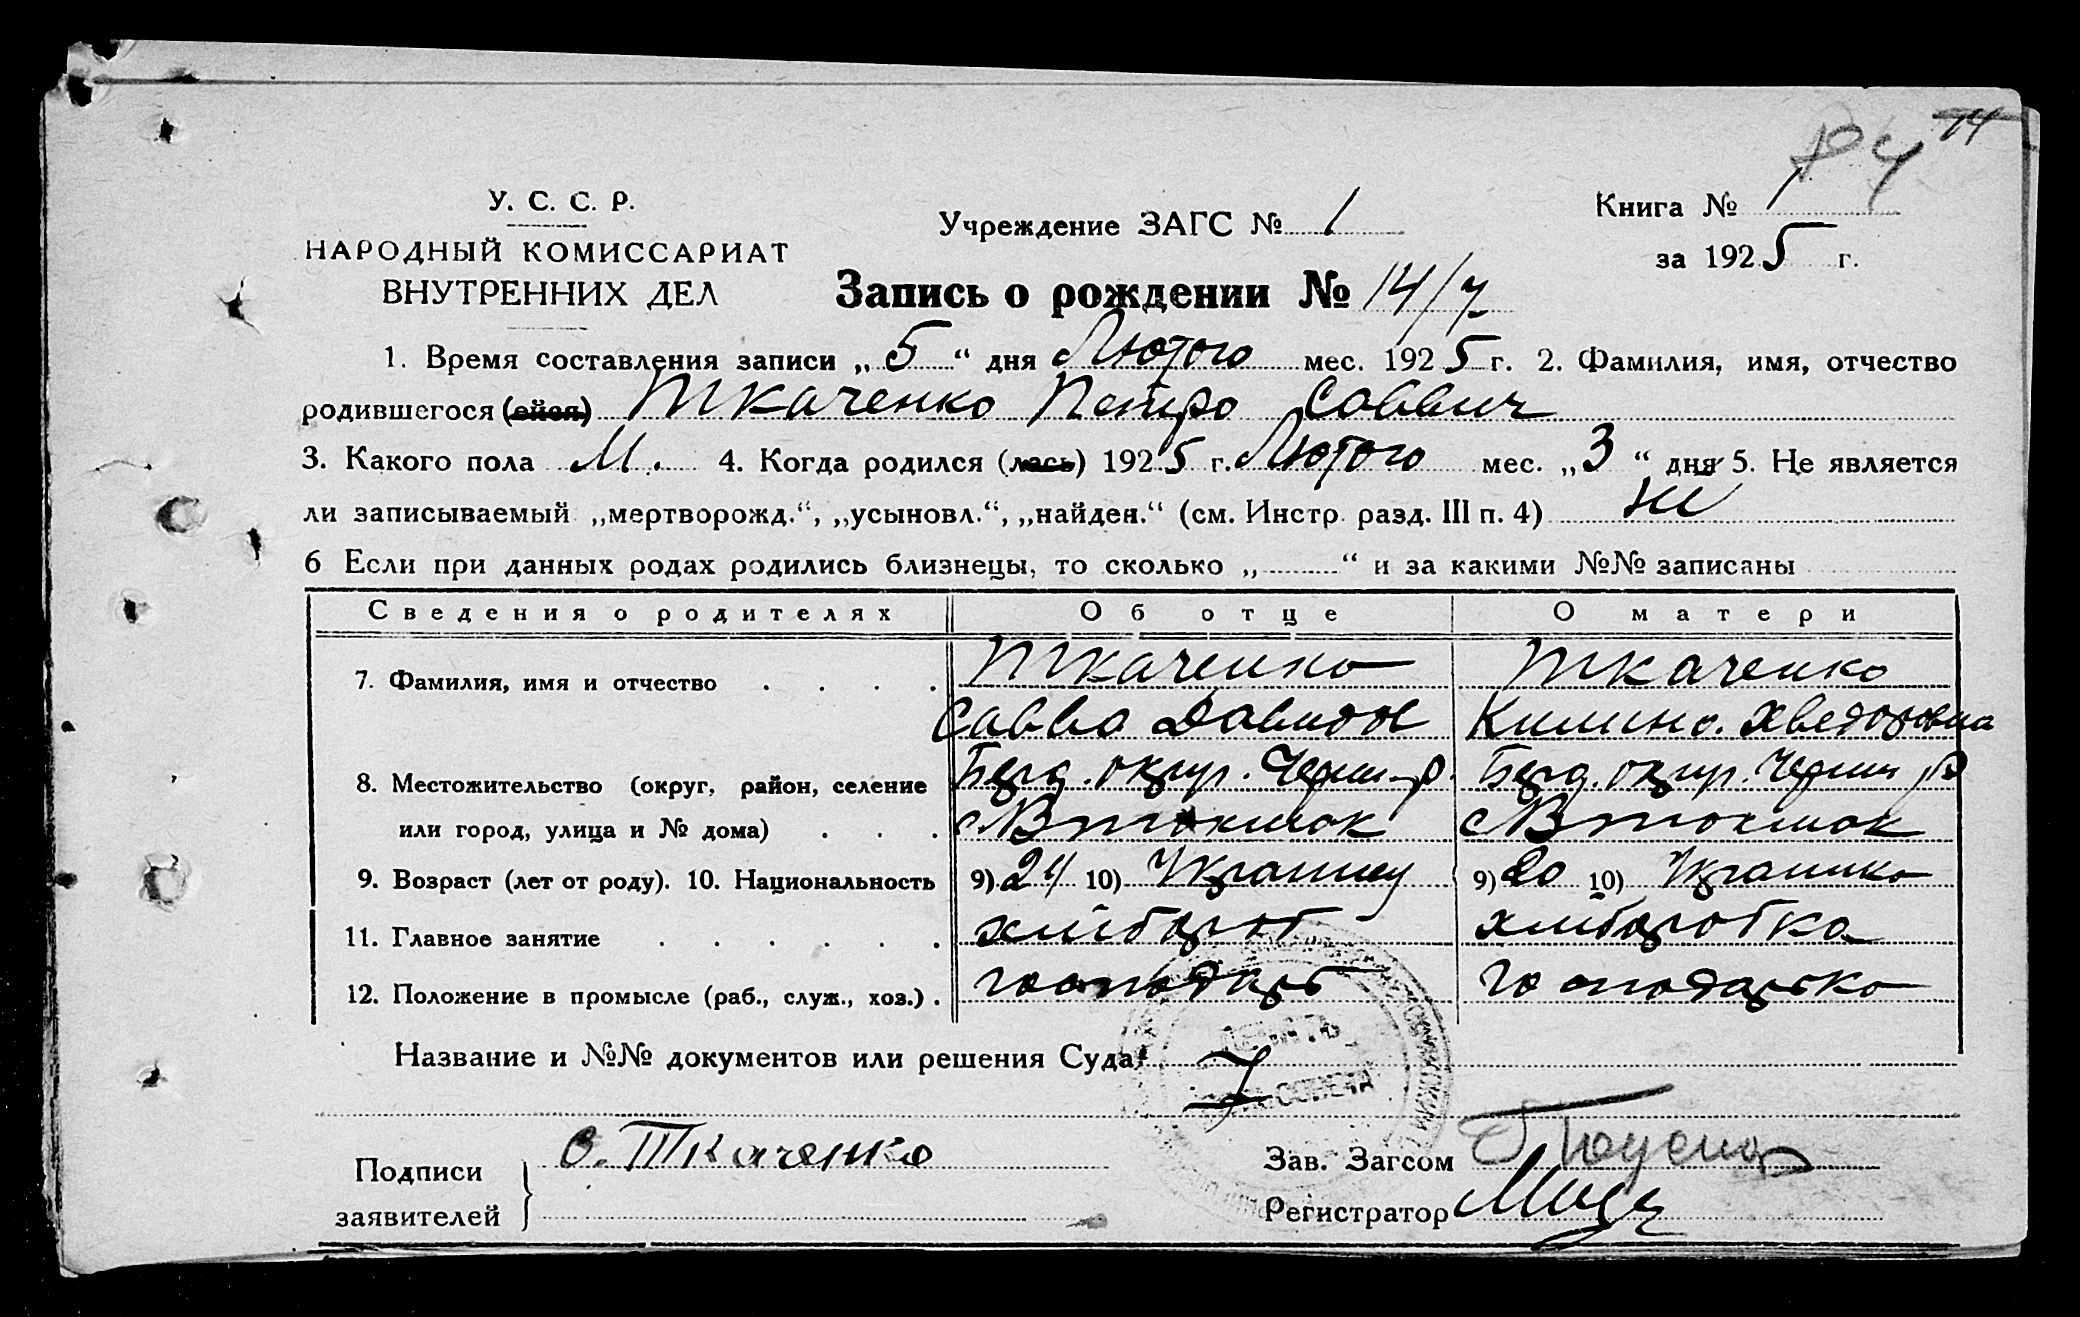 74
У. С. С. Р.
НАРОДНЫЙ КОМИССАРИАТ
ВНУТРЕННИХ ДЕЛ
Учреждение ЗАГС № 1
Книга № 1
за 1925 г.
Запись о рождении № 14/7
1. Время составления записи „5“ дня Лютого мес. 1925 г. 2. Фамилия, имя, отчество
родившегося (ейся) Ткаченко Петро Саввич
3. Какого пола М. 4. Когда родился (лась) 1925 г. Лютого мес. „3“ дня 5. Не является
ли записываемый „мертворожд.“, „усыновл.“, „найден.“ (см. Инстр. разд. III п. 4) ні
6 Если при данных родах родились близнецы, то сколько „ “ и за какими №№ записаны
Сведения о родителях Об отце О матери
7. Фамилия, имя и отчество Ткаченко Ткаченко
Савва Давидов Килина Хведоровна
8. Местожительство (округ, район, селение Берд. окру. Черн. р. Берд. окру. Черн р
или город, улица и № дома) с В токмак с В токмак
9. Возраст (лет от роду). 10. Национальность 9) 24 10) Українец 9) 20 10) Українка
11. Главное занятие хлібороб хліборобка
12. Положение в промысле (раб., служ., хоз.) господарь господарка
Название и №№ документов или решения Суда:
Подписи заявителей С. Ткаченко
Зав. Загсом
Регистратор